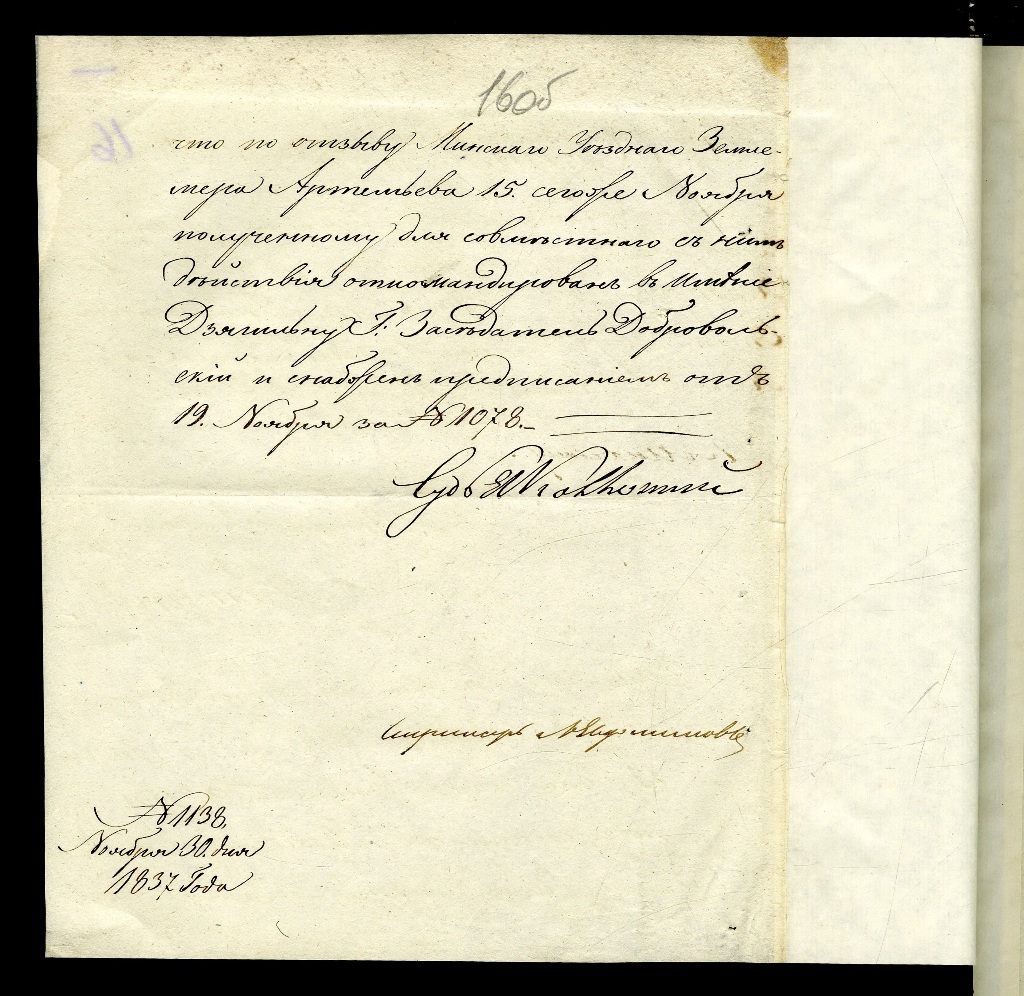 16об
что по отзыву Минскаго Уѣзднаго Земле-
мера Артемьева 15. сегоже Ноября
полученному для совмѣстнаго съ нимъ
дѣйствія откомандированъ въ имѣніе
Дзягильну Г: Засѣдатель Доброволь-
скій и снабженъ предписаніемъ отъ
19. Ноября за №1078.
Судья
№1138.
Ноября 30. дня
1837 Года